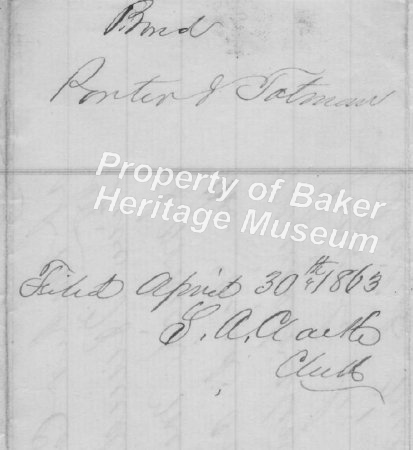 Bond
Porter & Totman
Property of Baker
Heritage Museum
Filed April 30th 1863
S. A. Clarke
Clerk